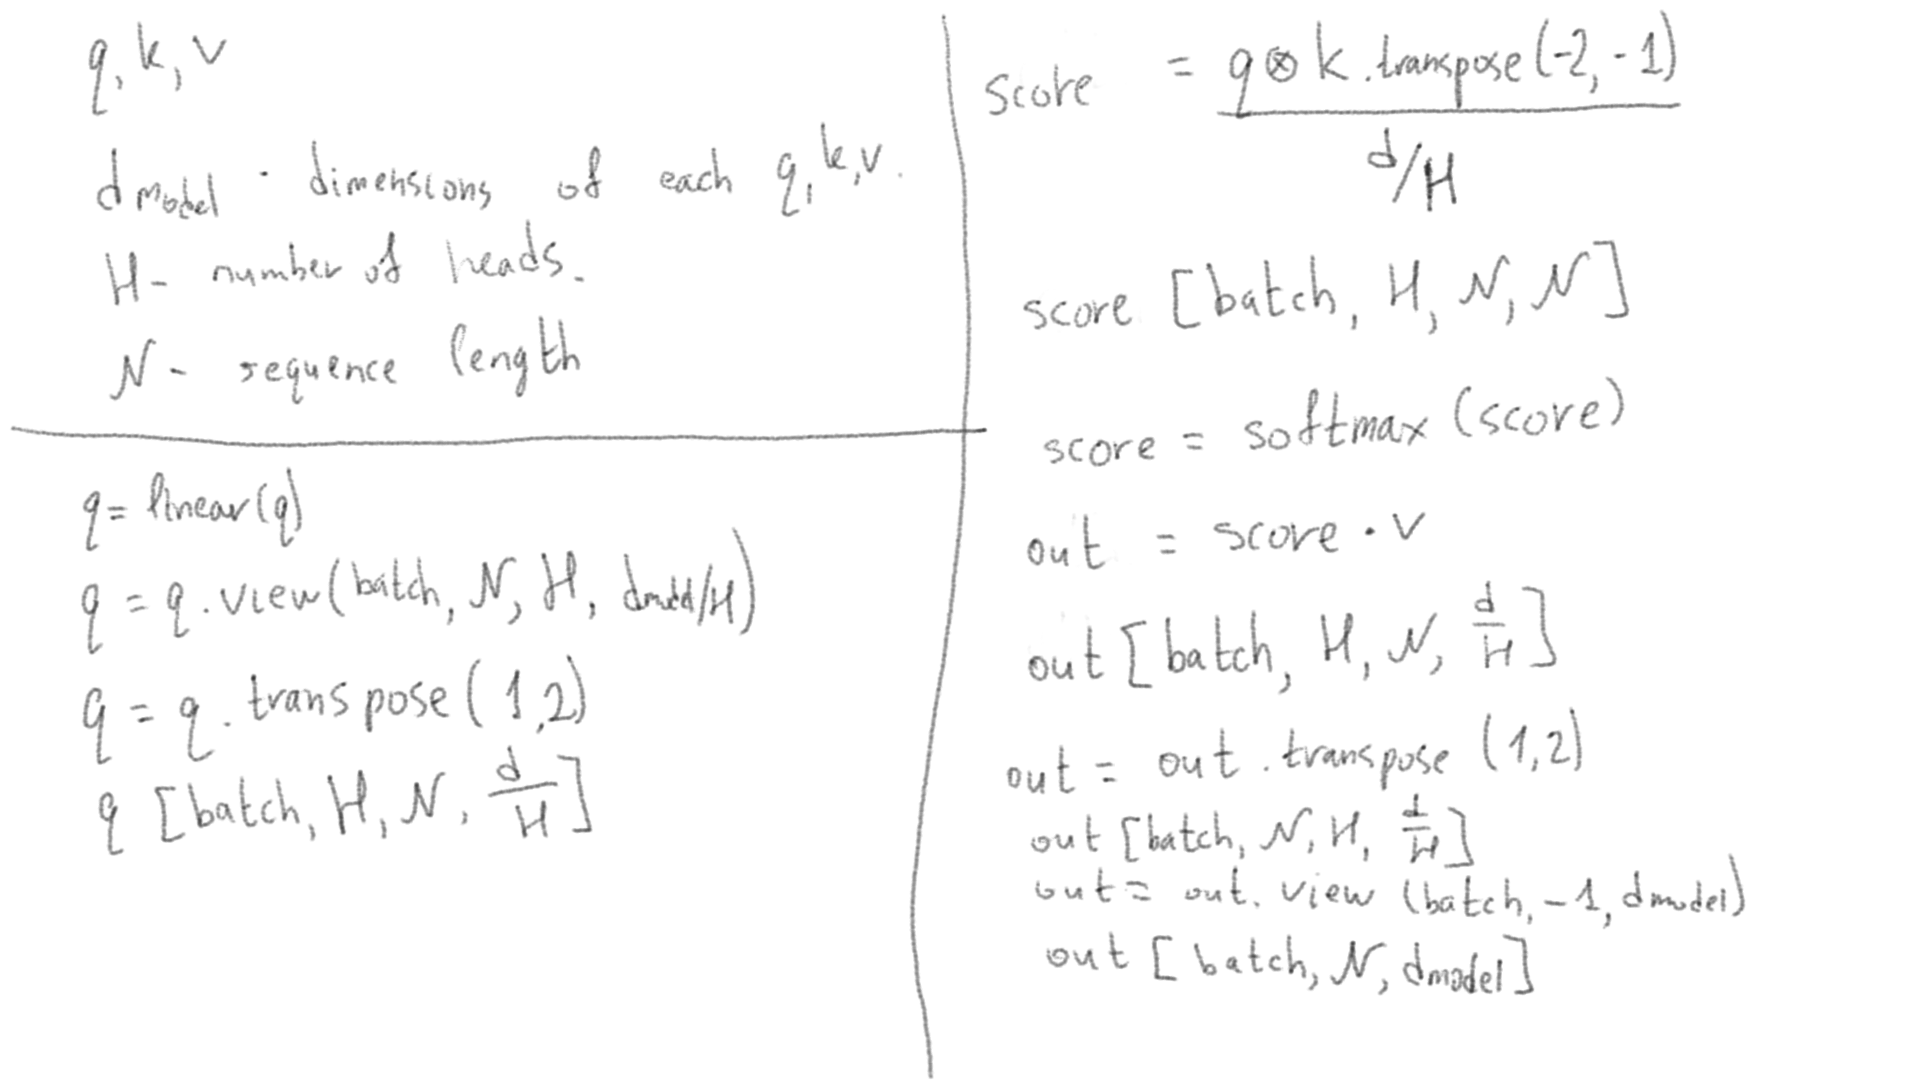 q, k, v
dmodel · dimensions of each q, k, v.
H - number of heads.
N - sequence length
q = linear(q)
q = q.view(batch, N, H, dmodel/H)
q = q.transpose(1,2)
q [batch, H, N, d/H]
score = q ⊗ k.transpose(-2, -1)
d/H
score [batch, H, N, N]
score = softmax (score)
out = score · v
out [batch, H, N, d/H]
out = out.transpose (1,2)
out [batch, N, H, d/H]
out = out. view (batch, -1, dmodel)
out [batch, N, dmodel]